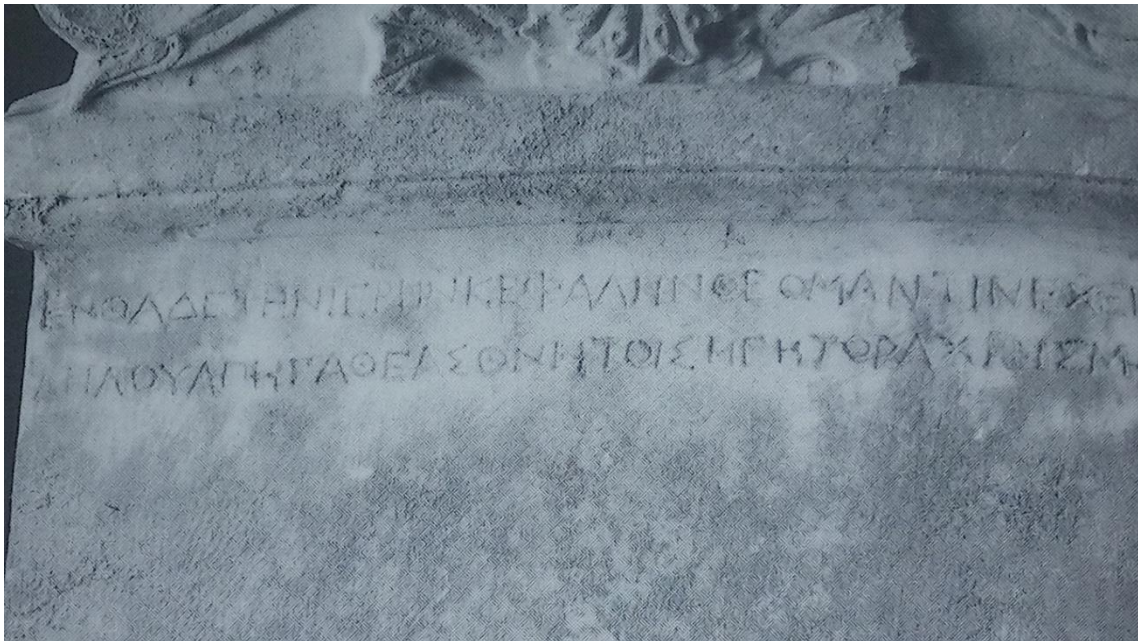 ΕΝΘΑΔΕΤΗΝΙΕΡΗΝΚΕΦΑΛΗΝΘΕΟΜΑΝΤΙΝΕΧΕΙ
ΔΗΛΟΥΑΠΗΓΑΘΕΑΣΘΝΗΤΟΙΣΗΓΗΤΟΡΑΧΡΗΣΜ